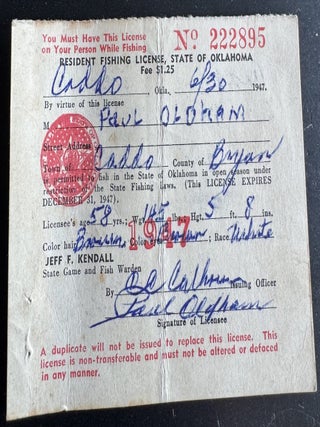 You Must Have This License
on Your Person While Fishing
No 222895
RESIDENT FISHING LICENSE, STATE OF OKLAHOMA
Fee $1.25
Caddo, Okla., 6/30 1947.
By virtue of this license
M Paul Oldham
Street Address
Caddo County of Bryan
is permitted to fish in the State of Oklahoma in open season under
restriction of the State Fishing Laws. (This LICENSE EXPIRES
DECEMBER 31, 1947).
Licensee's age 58 yrs.; Wgt. 145 lbs. Hgt. 5 ft. 8 ins.
Color hair Brown, Color eyes Brown; Race White
1947
JEFF F. KENDALL
State Game and Fish Warden
By Calhoun
Issuing Officer
Paul Oldham
Signature of Licensee
A duplicate will not be issued to replace this license. This
license is non-transferable and must not be altered or defaced
in any manner.